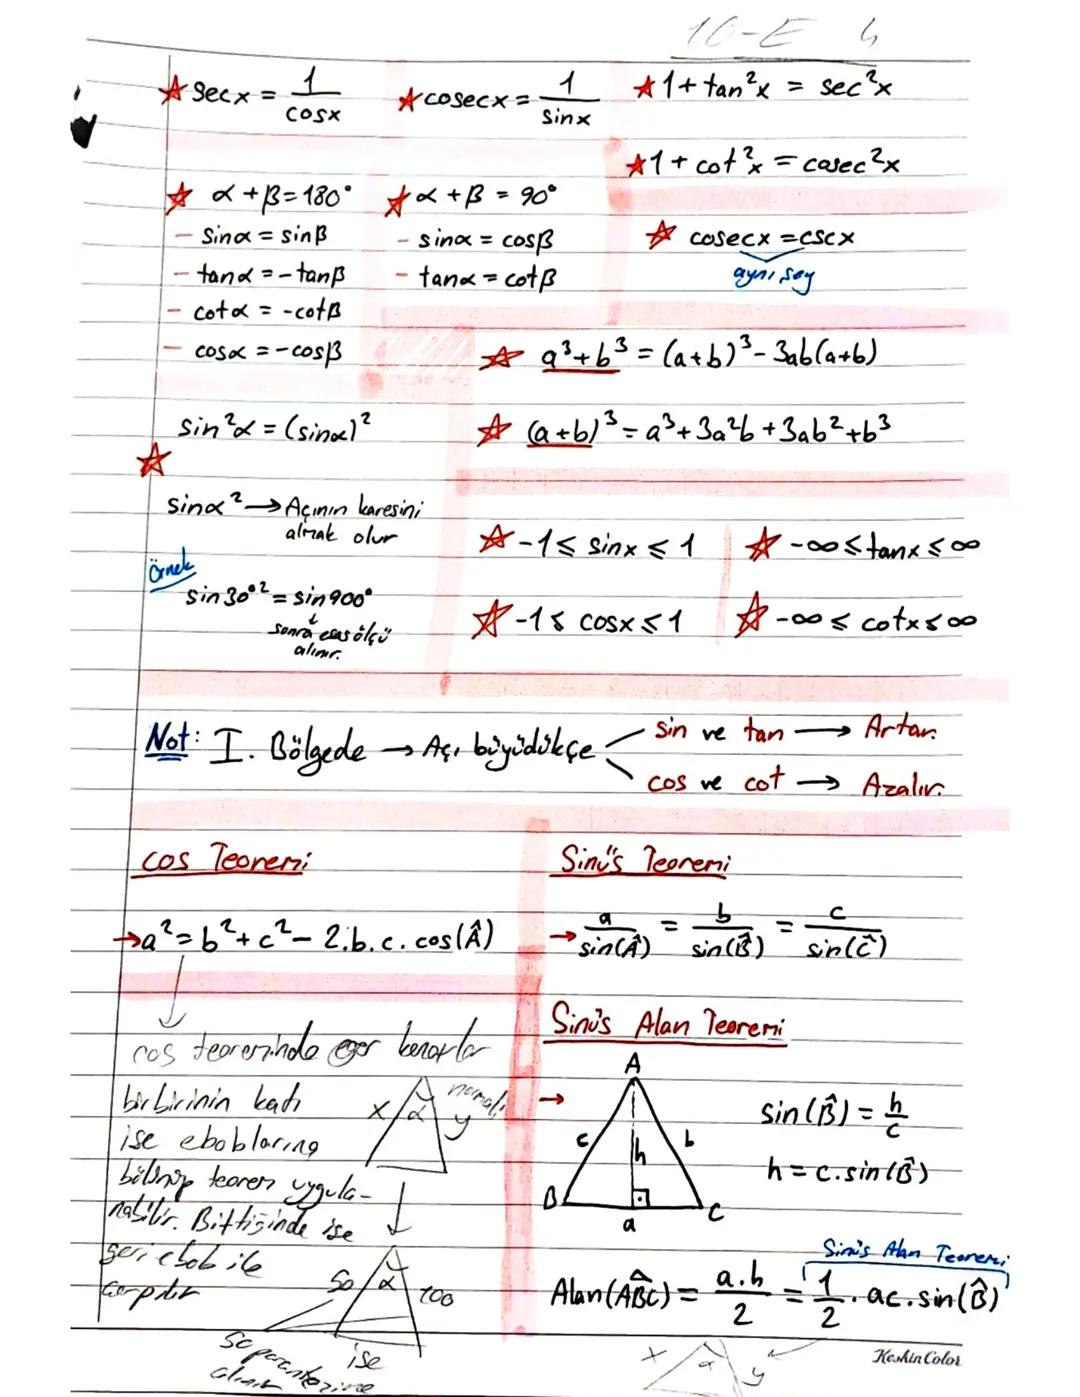 10-E 4
☆ secx = 1/cosx
☆ cosecx = 1/sinx
☆ 1 + tan²x = sec²x
☆ 1 + cot²x = cosec²x
☆ α + β = 180°
- sinα = sinβ
- tanα = -tanβ
- cotα = -cotβ
- cosα = -cosβ
☆ α + β = 90°
- sinα = cosβ
- tanα = cotβ
☆ cosecx = cscx
aynı şey
☆ a³+b³ = (a+b)³ - 3ab(a+b)
☆ (a+b)³ = a³+3a²b+3ab²+b³
☆ sin²α = (sinα)²
sinα² → Açının karesini
almak olur
Örnek
sin30°² = sin900°
↓
sonra esas ölçü
alınır.
☆ -1 ≤ sinx ≤ 1
☆ -∞ ≤ tanx ≤ ∞
☆ -1 ≤ cosx ≤ 1
☆ -∞ ≤ cotx ≤ ∞
Not: I. Bölgede → Açı büyüdükçe
sin ve tan → Artar.
cos ve cot → Azalır.
cos Teoremi
→ a² = b² + c² - 2.b.c.cos(Â)
cos teoreminde eğer kenarlar
birbirinin katı
ise eboblarına
bölünüp teorem uygula-
nabilir. Bittiğinde ise
geri ebob ile
çarpılır
x α y normali
50 α 100
50 parantezine
alınır
ise
Sinüs Teoremi
→ a/sin(Â) = b/sin(B̂) = c/sin(Ĉ)
Sinüs Alan Teoremi
→
A
c h b
B a C
sin(B̂) = h/c
h = c.sin(B̂)
Sinüs Alan Teoremi
Alan(ABC) = a.h/2 = 1/2 . ac.sin(B̂)
x α y
KeskinColor